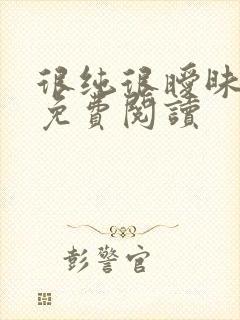 很纯很暧昧
免費閱讀
彭警官